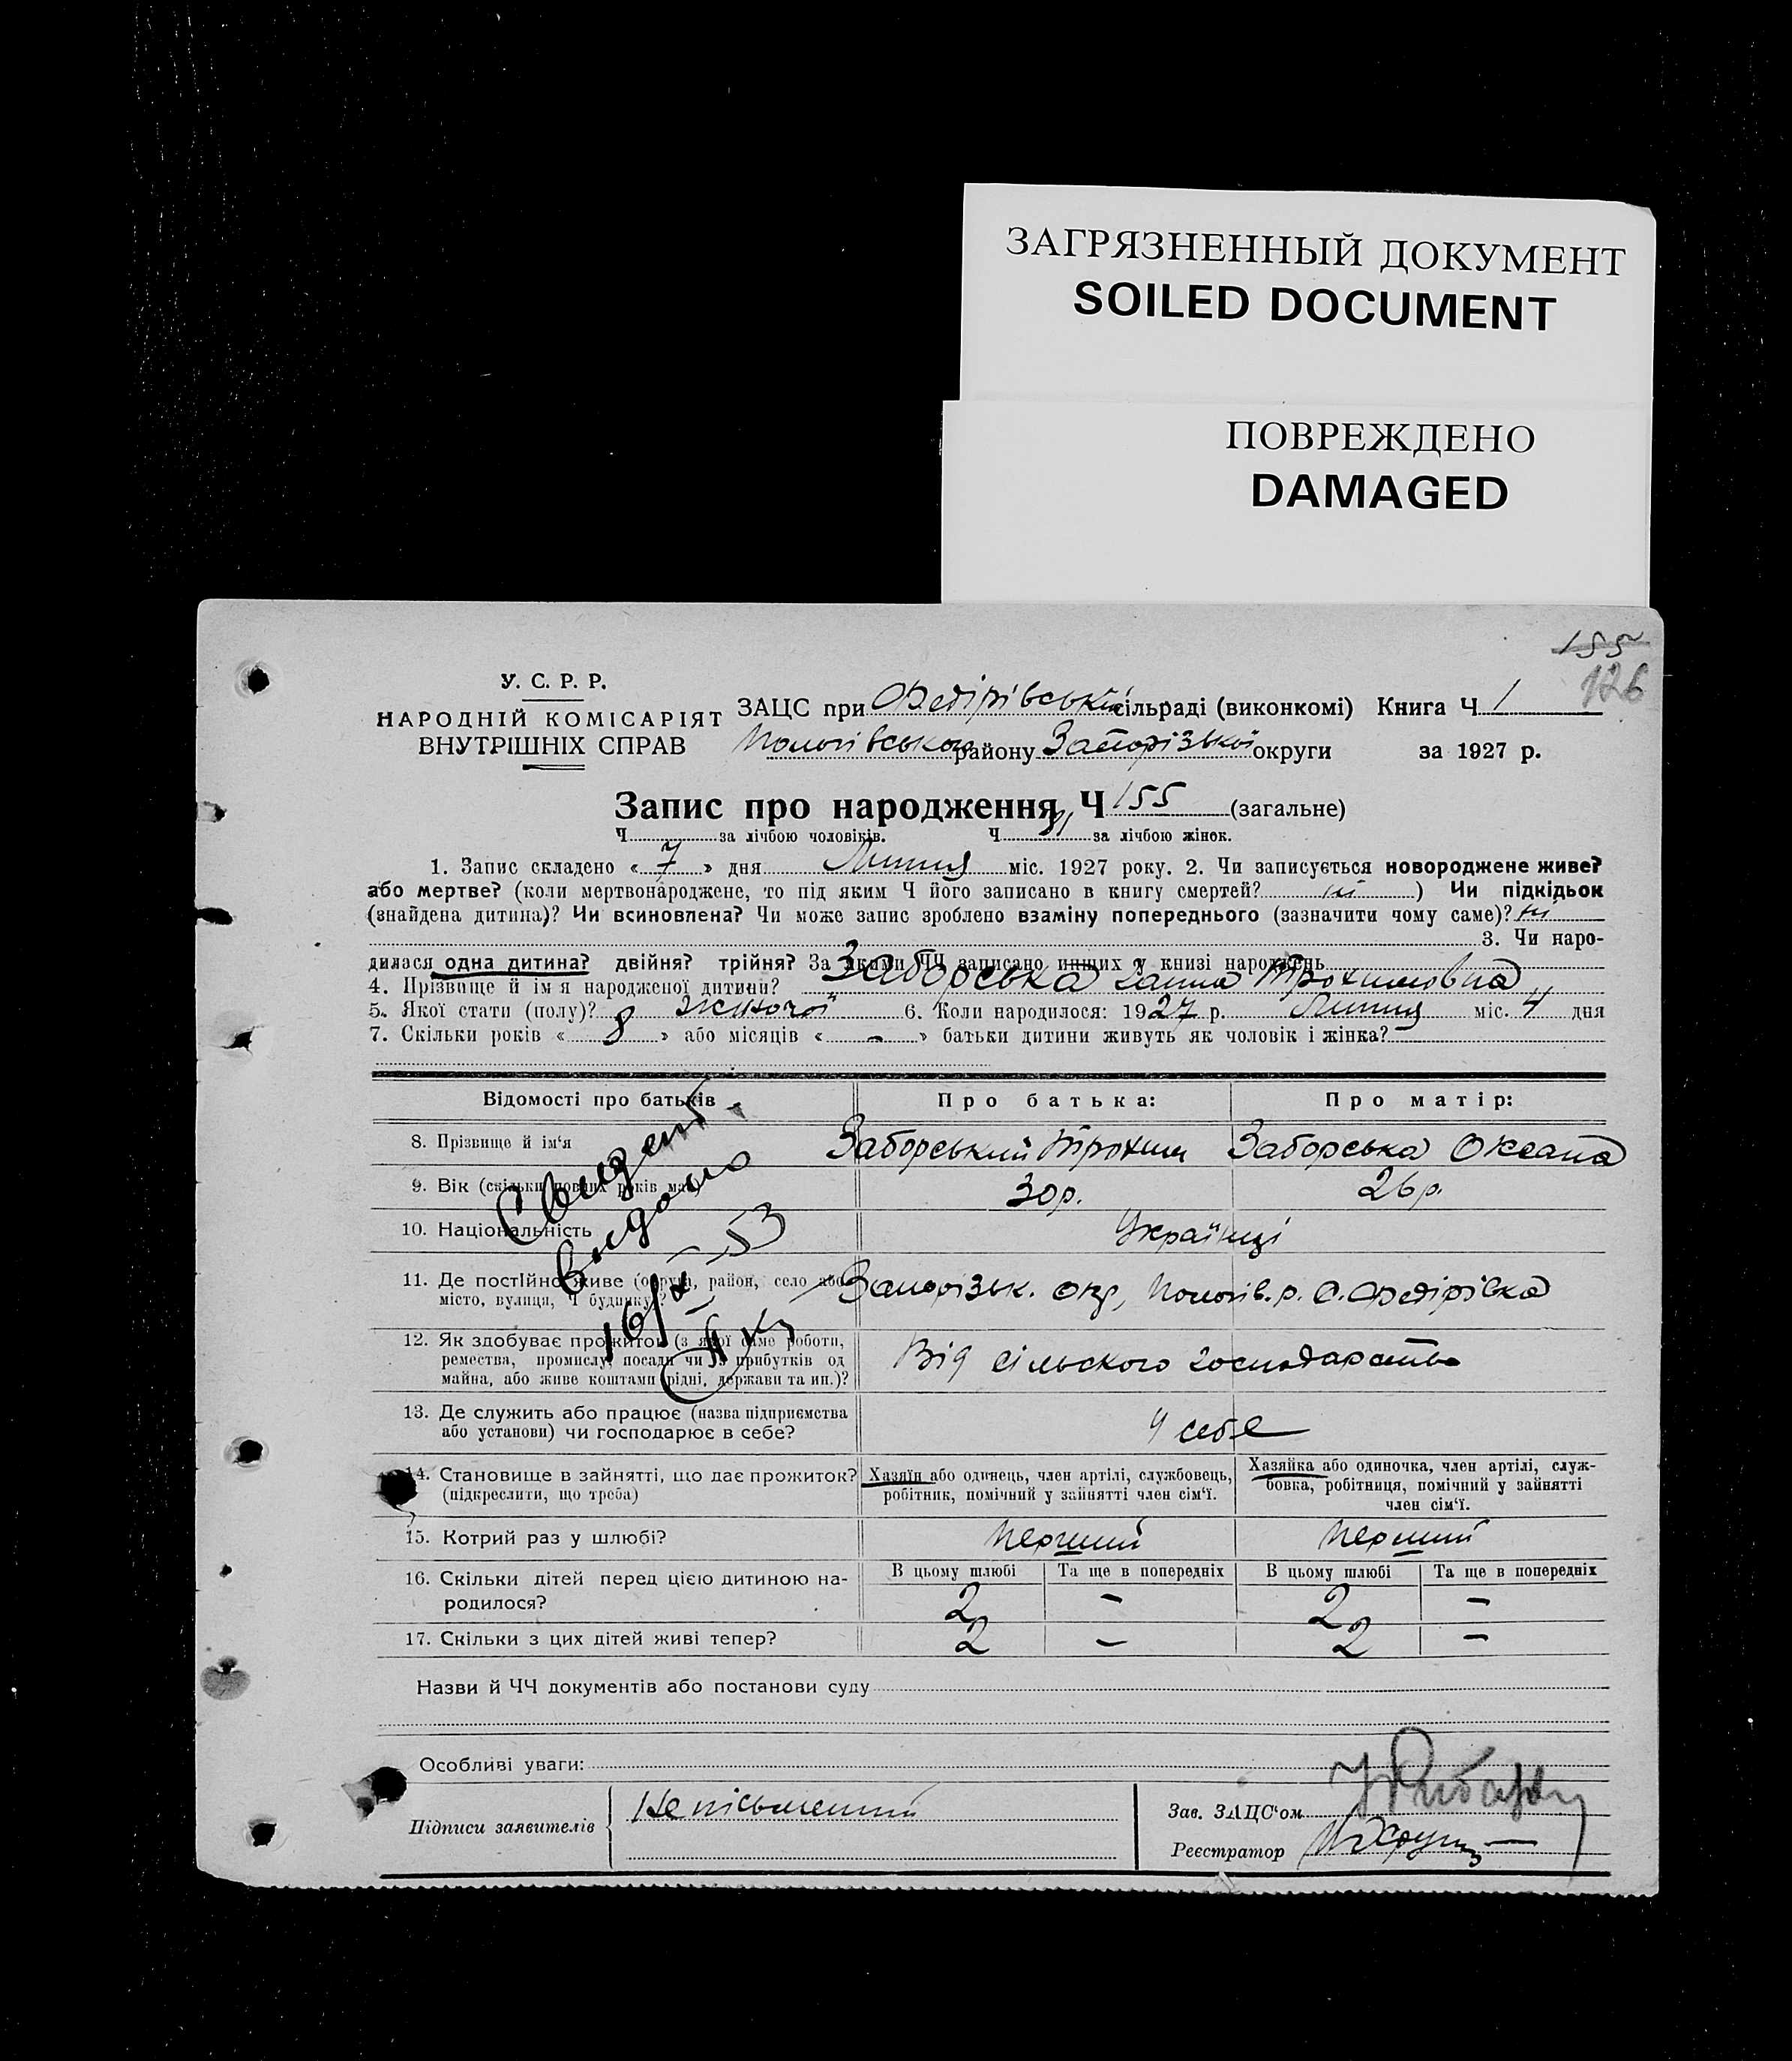 ЗАГРЯЗНЕННЫЙ ДОКУМЕНТ
SOILED DOCUMENT
ПОВРЕЖДЕНО
DAMAGED
155
126
У. С. Р. Р.
НАРОДНІЙ КОМІСАРІЯТ
ВНУТРІШНІХ СПРАВ
ЗАЦС при Федірівській сільраді (виконкомі) Книга Ч 1
Пологівського району Запорізької округи за 1927 р.
Запис про народження Ч 155 (загальне)
Ч за лічбою чоловіків. Ч за лічбою жінок.
1. Запис складено « 7 » дня Липня міс. 1927 року. 2. Чи записується новороджене живе?
або мертве? (коли мертвонароджене, то під яким Ч його записано в книгу смертей? ні ) Чи підкідьок
(знайдена дитина)? Чи всиновлена? Чи може запис зроблено взаміну попереднього (зазначити чому саме)? ні
3. Чи наро-
дилася одна дитина? двійня? трійня? За якими ЧЧ записано инших у книзі народжень
4. Прізвище й ім'я народженої дитини? Заборська Ганна Трохимовна
5. Якої стати (полу)? жіночої 6. Коли народилося: 1927 р. Липня міс. 4 дня
7. Скільки років « 8 » або місяців « - » батьки дитини живуть як чоловік і жінка?
Відомості про батьків Про батька: Про матір:
8. Прізвище й ім'я Заборський Трохим Заборська Оксана
9. Вік (скільки повних років має) 30 р. 26 р.
10. Національність Українці
11. Де постійно живе (округа, район, село або
місто, вулиця, Ч будинку)? Запорізьк. окр, Пологів. р. С. Федірівка
12. Як здобуває прожиток (з якої саме роботи,
ремества, промислу, посади чи з прибутків од
майна, або живе коштами рідні, держави та ин.)? Від сільского господарства
13. Де служить або працює (назва підприємства
або установи) чи господарює в себе? У себе
14. Становище в зайнятті, що дає прожиток?
(підкреслити, що треба)
Хазяїн або одинець, член артілі, службовець,
робітник, помічний у зайнятті член сім'ї.
Хазяйка або одиночка, член артілі, служ-
бовка, робітниця, помічний у зайнятті
член сім'ї.
15. Котрий раз у шлюбі? перший перший
16. Скільки дітей перед цією дитиною на-
родилося?
В цьому шлюбі Та ще в попередніх В цьому шлюбі Та ще в попередніх
2 - 2 -
17. Скільки з цих дітей живі тепер? 2 - 2 -
Свидет.
выдано
16/X-53
Назви й ЧЧ документів або постанови суду
Особливі уваги:
Підписи заявителів Непісьменний
Зав. ЗАЦС'ом
Реєстратор